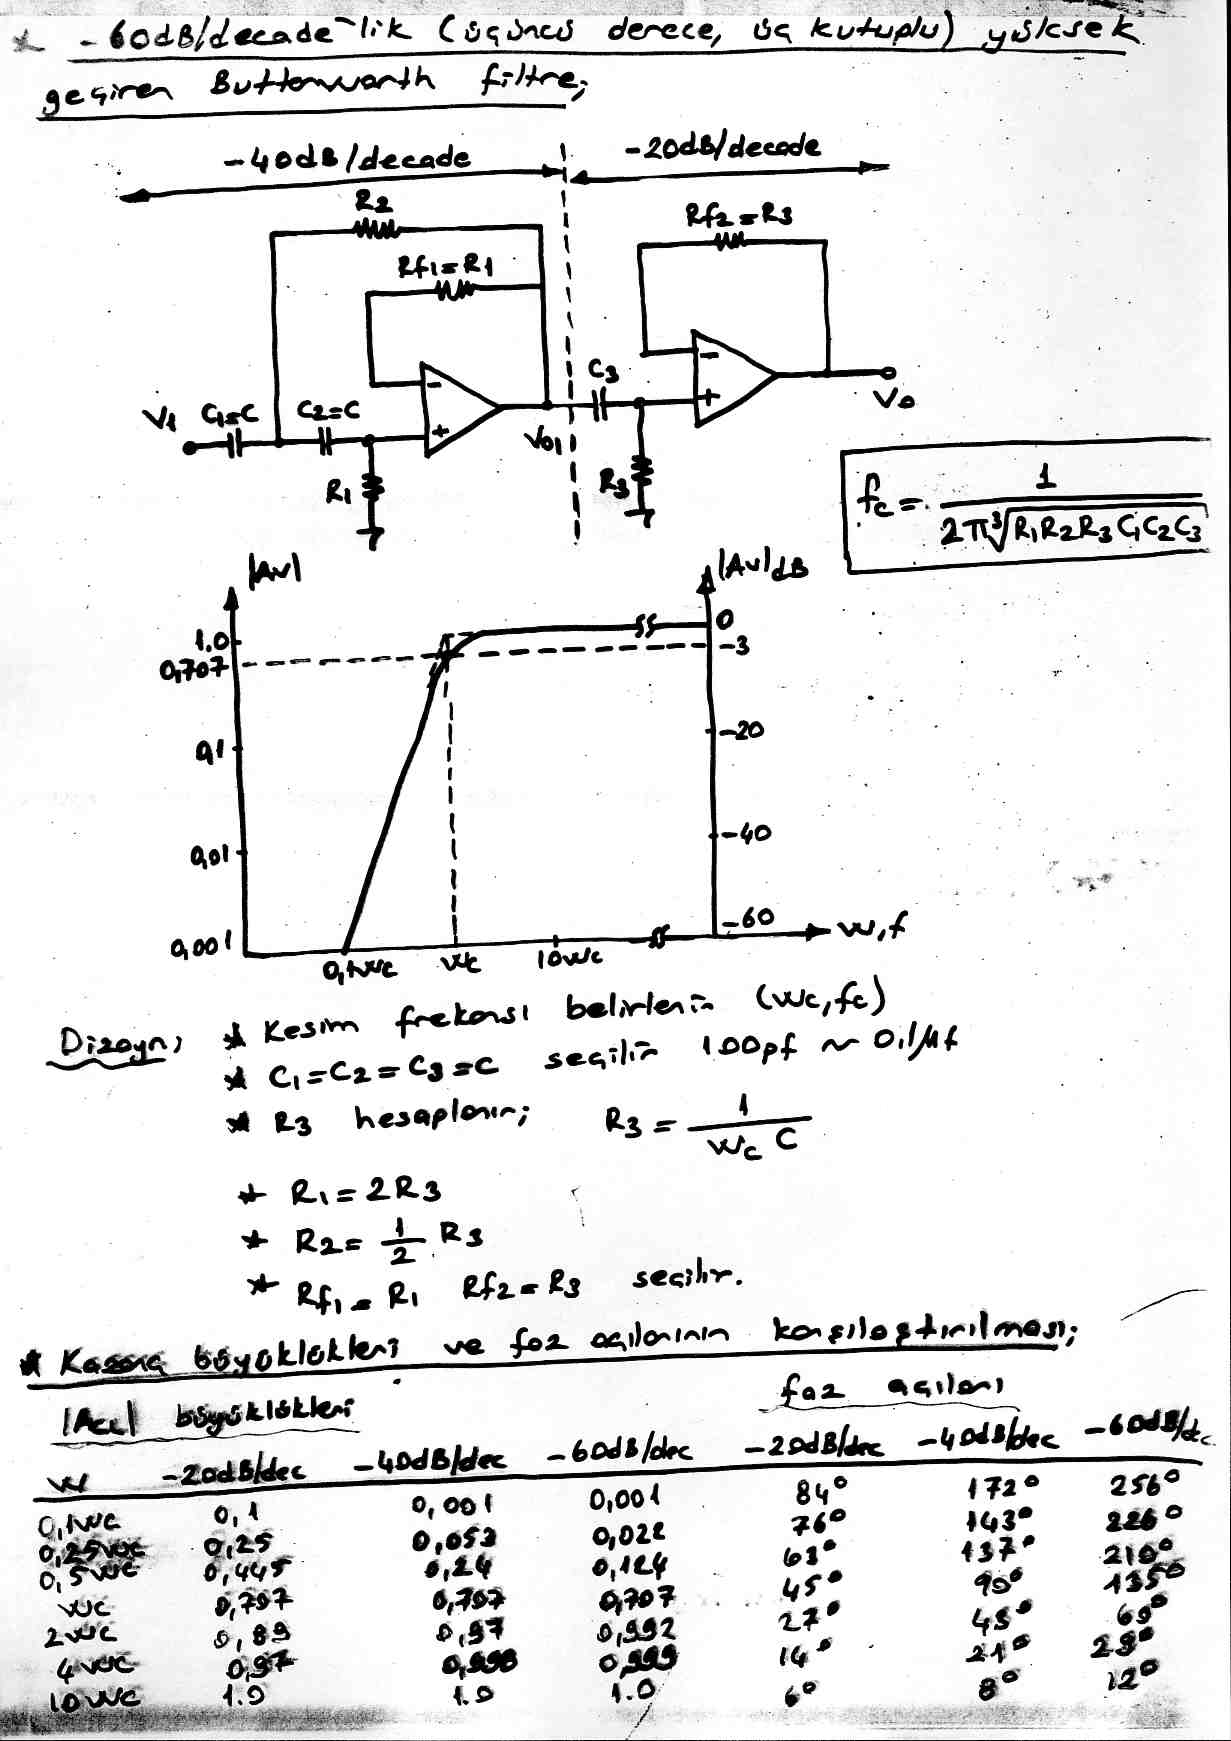 * -60dB/decade-lik (üçüncü derece, üç kutuplu) yüksek
geçiren Butterworth filtre;
-40dB/decade
-20dB/decade
R2
Rf1=R1
Rf2=R3
C3
V1 C1=C C2=C
V01
Vo
R1
R3
fc = 1 / 2π ∛R1R2R3C1C2C3
|Av|
|Av|dB
1.0
0,707
0,1
0,01
0,001
0
-3
-20
-40
-60
w,f
0,1wc wc 10wc
Dizayn; * Kesim frekansı belirlenir (wc,fc)
* C1=C2=C3=C seçilir 100pf ~ 0.1µf
* R3 hesaplanır; R3 = 1 / wc C
* R1=2R3
* R2= 1/2 R3
* Rf1=R1 Rf2=R3 seçilir.
* Kazanç büyüklükleri ve faz açılarının karşılaştırılması;
|Acl| büyüklükleri faz açıları
w -20dB/dec -40dB/dec -60dB/dec -20dB/dec -40dB/dec -60dB/dec
0,1wc 0,1 0,001 0,001 84° 172° 256°
0,25wc 0,25 0,053 0,022 76° 143° 226°
0,5wc 0,445 0,24 0,124 63° 137° 210°
wc 0,707 0,707 0,707 45° 90° 135°
2wc 0,89 0,97 0,992 27° 43° 60°
4wc 0,97 0,998 0,999 14° 21° 29°
10wc 1.0 1.0 1.0 6° 8° 12°